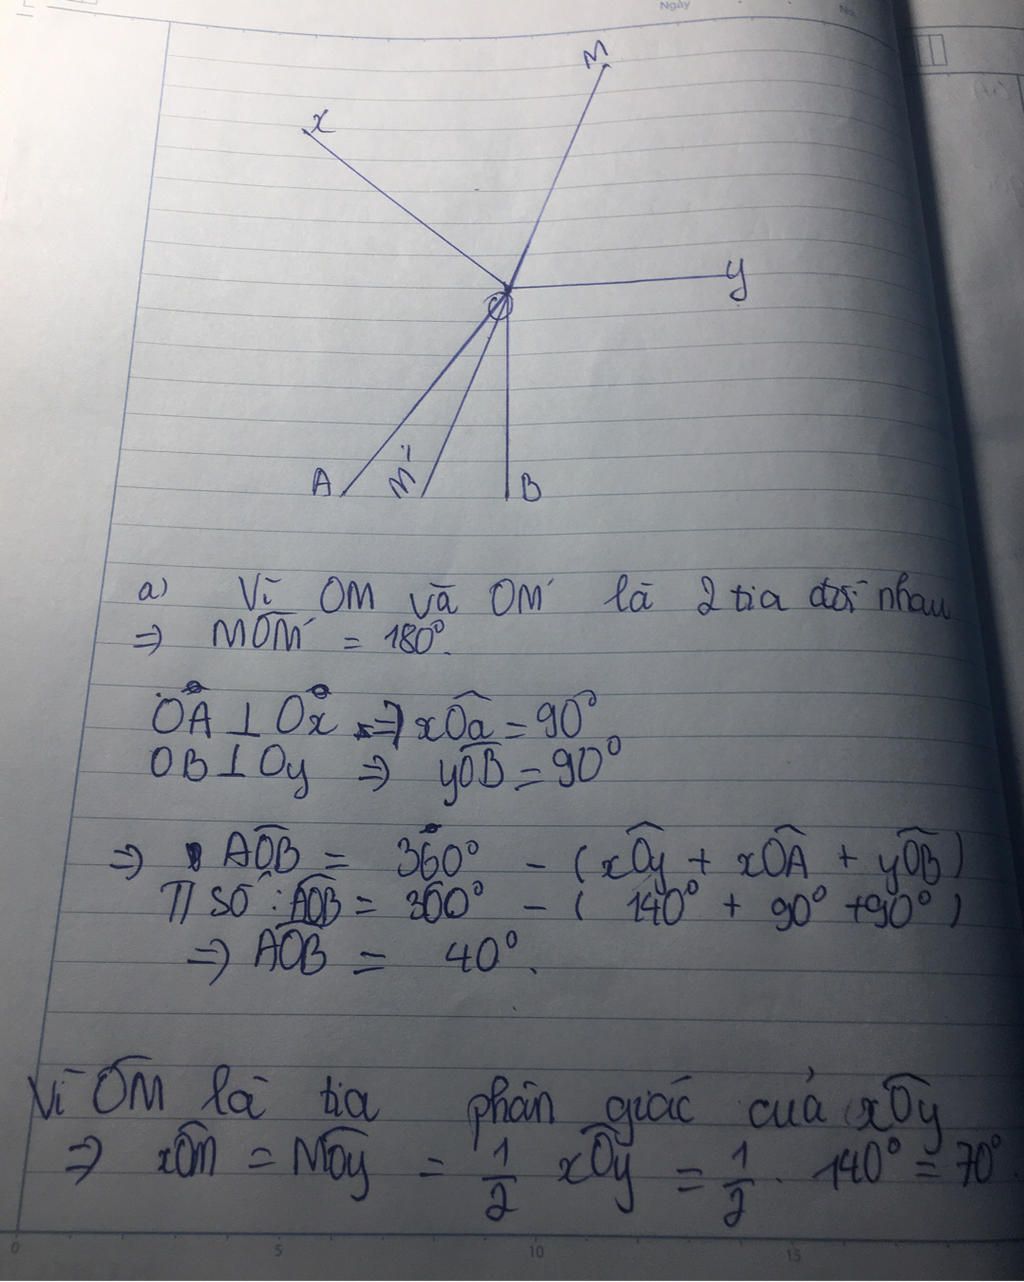 Ngày
No.
M
x
y
O
A
M'
B
a) Vì OM và OM' là 2 tia đối nhau
=> MOM' = 180°.
OA ⊥ Ox => xOa = 90°
OB ⊥ Oy => yOB = 90°
=> AOB = 360° - (xOy + xOA + yOB)
T/số : AOB = 360° - ( 140° + 90° +90° )
=> AOB = 40°.
Vì OM là tia phân giác của xOy
=> xOm = MOy = 1/2 xOy = 1/2 . 140° = 70°.
0 5 10 15